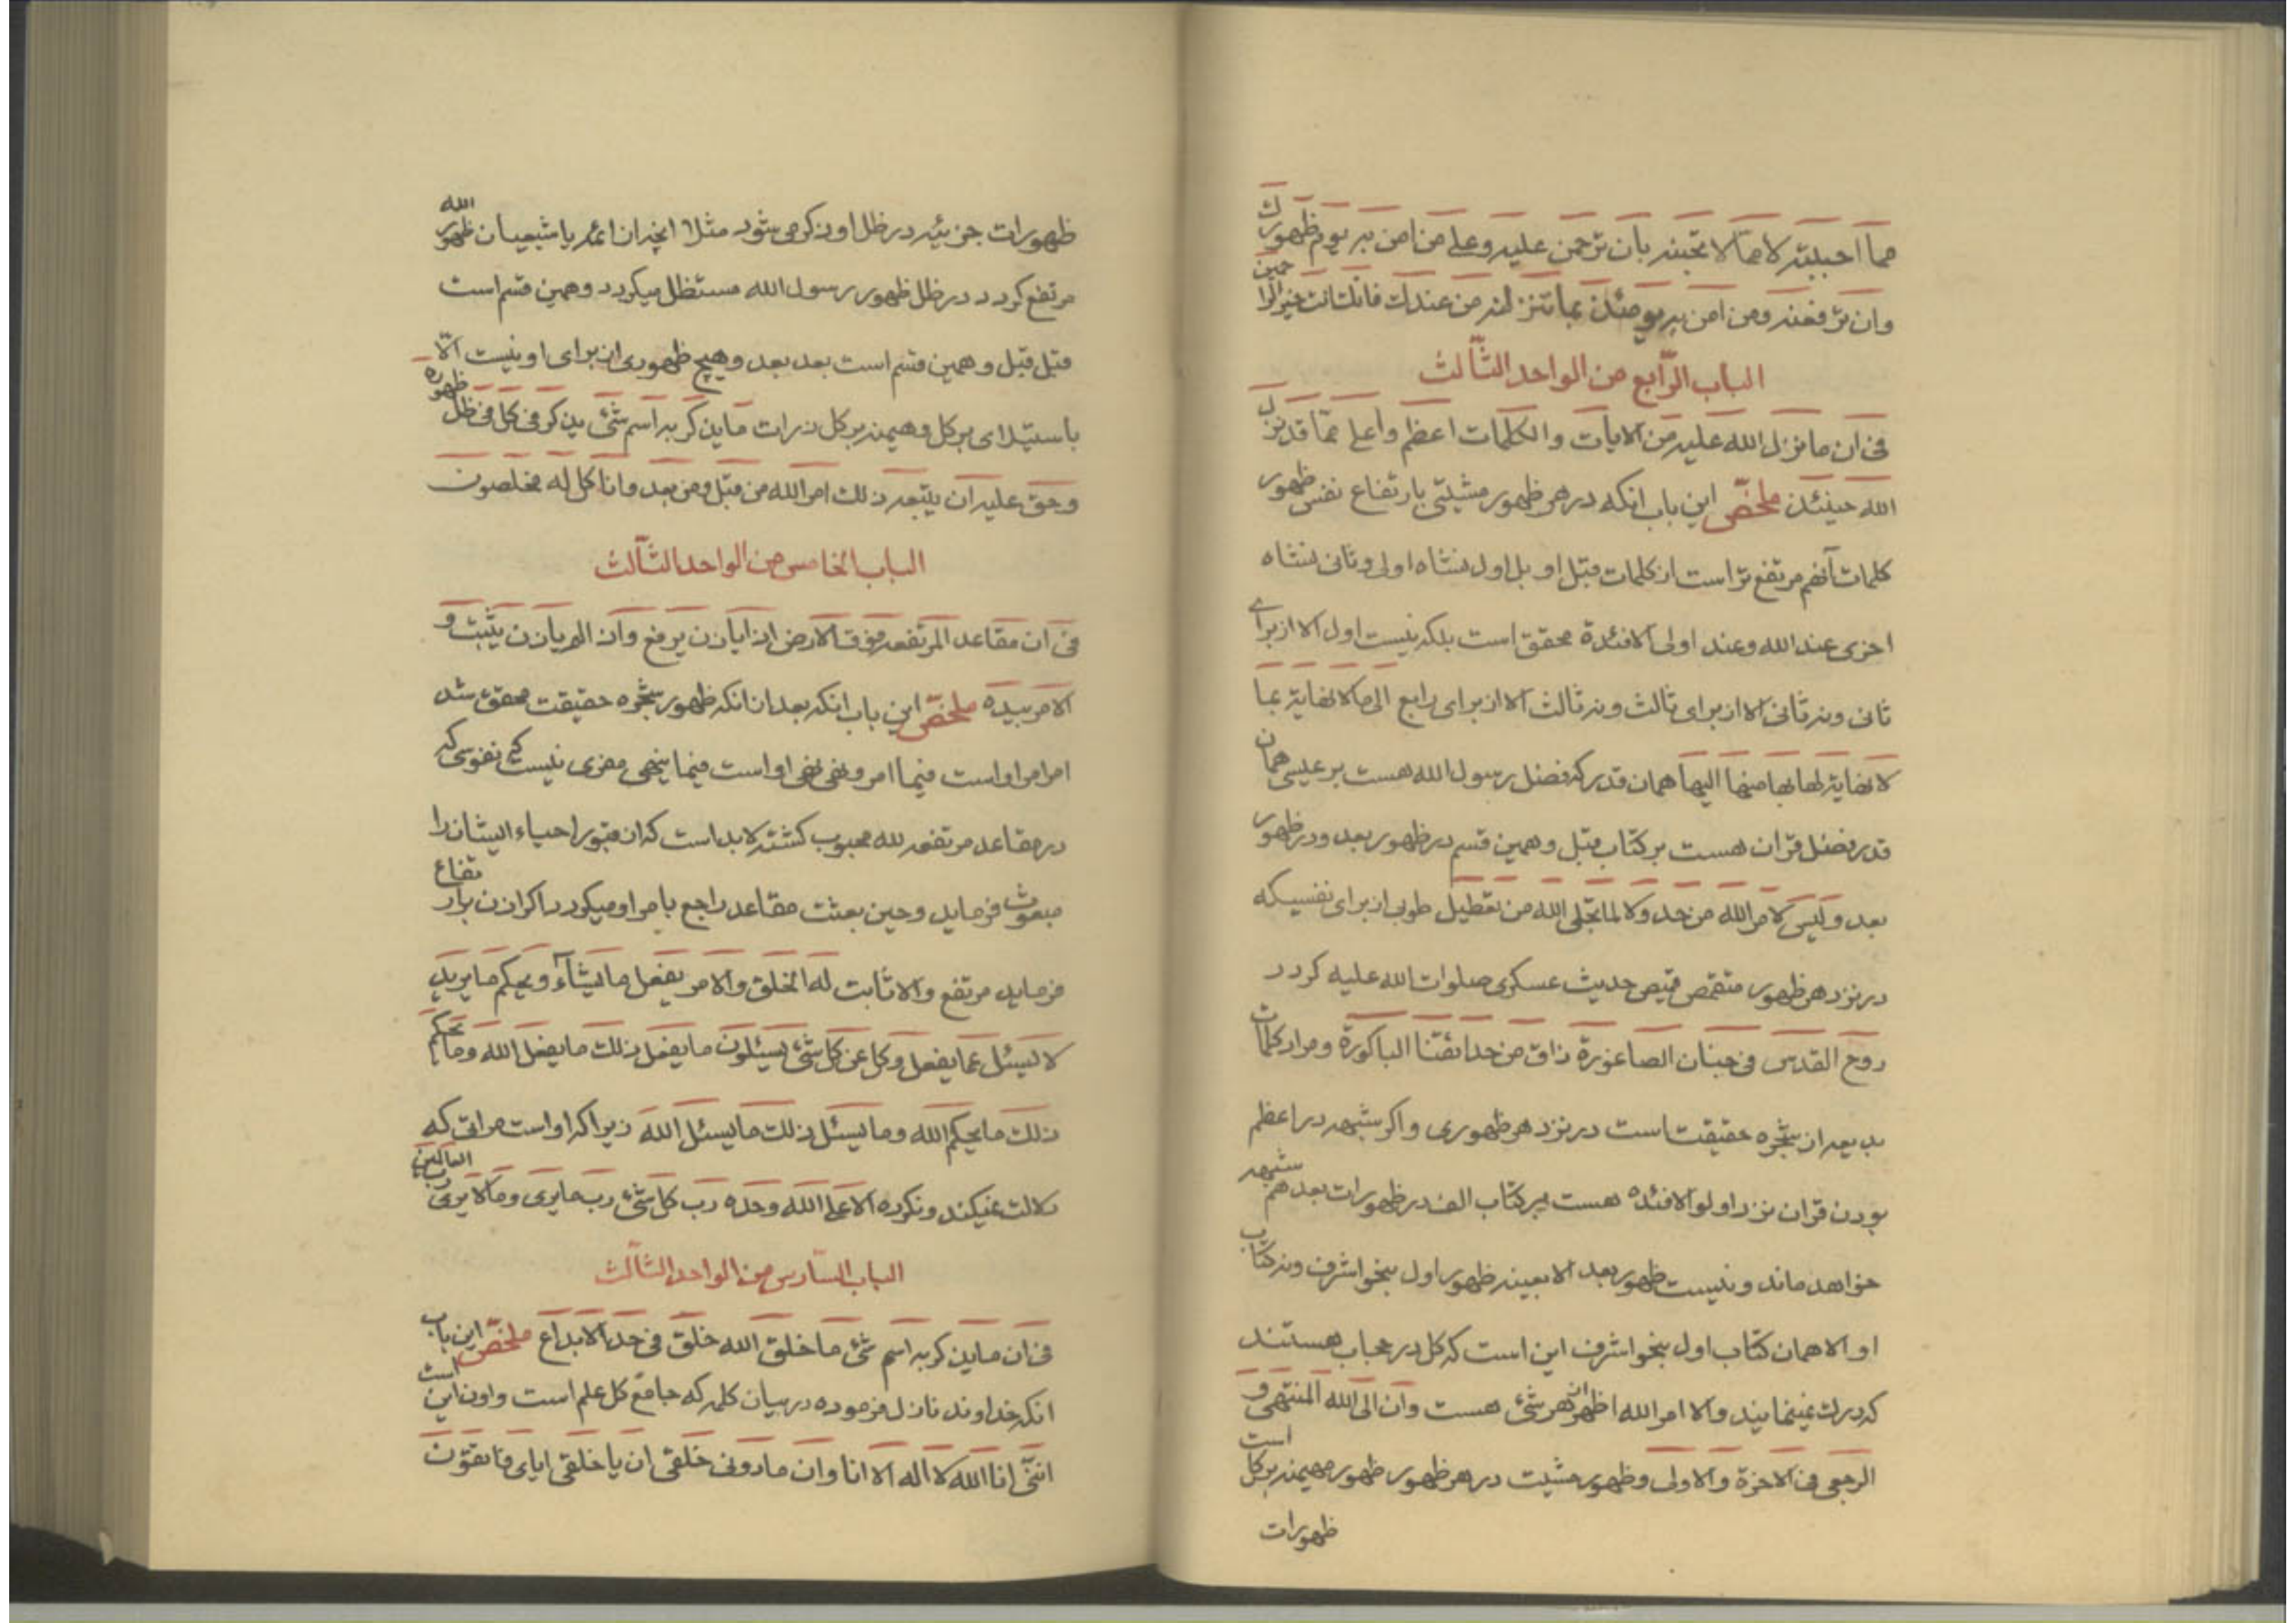 مما احببته لا مما لا تحبنه بان ترحمن علیه و علی من امن به یوم ظهورك
وان ترفعنه ومن امن به یومئذ بما تنزلنه من عندك فانك انت خیر الراحمین
الباب الرّابع من الواحد الثّالث
فی ان ما نزل الله علیه من الایات والکلمات اعظم واعلی عمّا قد نزل
الله حینئذ ملخّص این باب انکه در هر ظهور مشیتی بارتفاع نفس ظهور
کلمات آنهم مرتفع تر است از کلمات قبل او بل اول نشاه اولی و ثانی نشاه
اخری عند الله وعند اولی الافئدة محقق است بلکه نیست اول الا از برای
ثانی ونه ثانی الا از برای ثالث ونه ثالث الا از برای رابع الی ما لا نهایة بما
لا نهایة لها بها منها الیها همان قدر که فضل رسول الله هست بر عیسی همان
قدر فضل قران هست بر کتاب قبل و همین قسم در ظهور بعد ودر ظهور
بعد ولیس لامر الله من حد ولا لما تجلی الله من تعطیل طوبی از برای نفسیکه
در نزد هر ظهور متقمص قمیص حدیث عسکری صلوات الله علیه کردد
روح القدس فی جنان الصاغورة ذاق من حدائقنا الباکورة ومراد کلمات
بدیعه ان شجره حقیقت است در نزد هر ظهوری واکر شبهه در اعظم
بودن قران نزد اولو الافئده هست بر کتاب الف در ظهورات بعد هم شبهه
خواهد ماند ونیست ظهور بعد الا بعینه ظهور اول بنحو اشرف ونه کتاب
او الا همان کتاب اول بنحو اشرف این است که کل در حجاب هستند
که درك نمینمایند والا امر الله اظهر از هر شئ هست وان الی الله المنتهی و
الرجعی فی الاخرة والاولی وظهور مشیت در هر ظهور ظهور مهیمنه بر کل است
ظهورات
ظهورات جزئیه در ظل او ذکر می شود مثلا انچه از ائمه یا شیعیان ظهور الله
مرتفع کردد در ظل ظهور رسول الله مستظل میکردد وهمین قسم است
قبل قبل وهمین قسم است بعد بعد وهیچ ظهوری از برای او نیست الّا
باستیلای بر کل وهیمنه بر کل ذرات ما یذکر به اسم شئ یذکر فی کل فی ظل ظهوره
وحق علیه ان یتبعه ذلك امر الله من قبل ومن بعد وانا کل له مخلصون
الباب الخامس من الواحد الثّالث
فی ان مقاعد المرتفعه فوق الارض اذا یاذن یرفع وان لم یاذن یثبت و
الامر بیده ملخّص این باب انکه بعد از انکه ظهور شجره حقیقت محقق شد
امر امر او است فیما امر ونهی نهی او است فیما ینهی مفری نیست که نفوسی که
در مقاعد مرتفعه لله محبوب کشته لابد است که از قبور احیاء ایشان را
مبعوث فرماید وحین بعثت مقاعد راجع بامر او میکردد اکر اذن بارتفاع
فرماید مرتفع والا ثابت له الخلق والامر یفعل ما یشآء ویحکم ما یرید
لا یسئل عما یفعل وکل عن کل شئ یسئلون ما یفعل ذلك ما یفعل الله وما یحکم
ذلك ما یحکم الله وما یسئل ذلك ما یسئل الله زیرا که او است مراتی که
دلالت نمیکند ونکرده الا علی الله وحده رب کل شئ رب ما یری وما لا یری رب العالمین
الباب السّادس من الواحد الثّالث
فی ان ما یذکر به اسم شئ ما خلق الله خلق فی حد الابداع ملخّص این باب
انکه خداوند نازل فرموده در بیان کلمه که جامع کل علم است واون این است
اننّی انا الله لا اله الا انا وان ما دونی خلقی ان یا خلقی ایای فاتقون